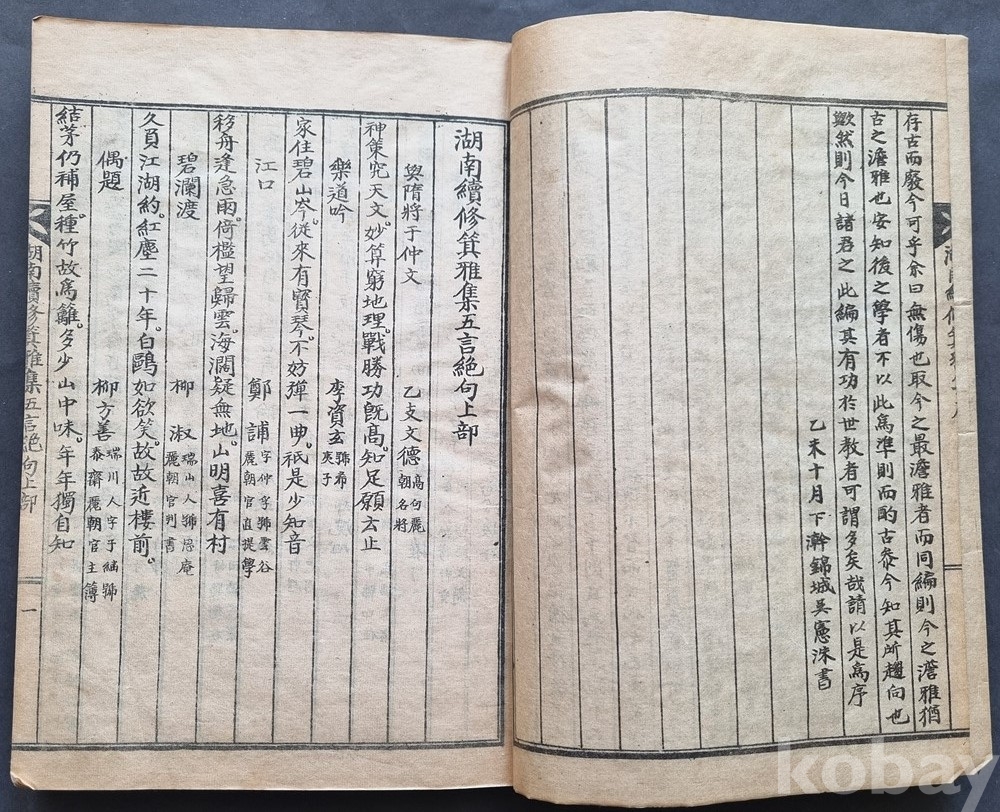 存古而廢今可乎余曰無傷也取今之最澹雅者而同編則今之澹雅猶
古之澹雅也安知後之學者不以此爲準則而酌古叅今知其所趨向也
歟然則今日諸君之此編其有功於世教者可謂多矣哉請以是爲序
乙未十月下澣錦城吳憲洙書
湖南續修箕雅集五言絶句上部
與隋將于仲文 乙支文德 高句麗朝名將
神策究天文。妙算窮地理。戰勝功旣高。知足願云止
樂道吟 李資玄 號希夷子
家住碧山岑。從來有寶琴。不妨彈一曲。祇是少知音
江口 鄭誧 字仲孚號雪谷麗朝官直提學
移舟逢急雨。倚檻望歸雲。海濶疑無地。山明喜有村
碧瀾渡 柳淑 瑞山人號思庵麗朝官判書
久負江湖約。紅塵二十年。白鷗如欲笑。故故近樓前。
偶題 柳方善 瑞川人字子繼號泰齋麗朝官主簿
結茅仍補屋。種竹故爲籬。多少山中味。年年獨自知
湖南續修箕雅集五言絶句上部
一
kobay